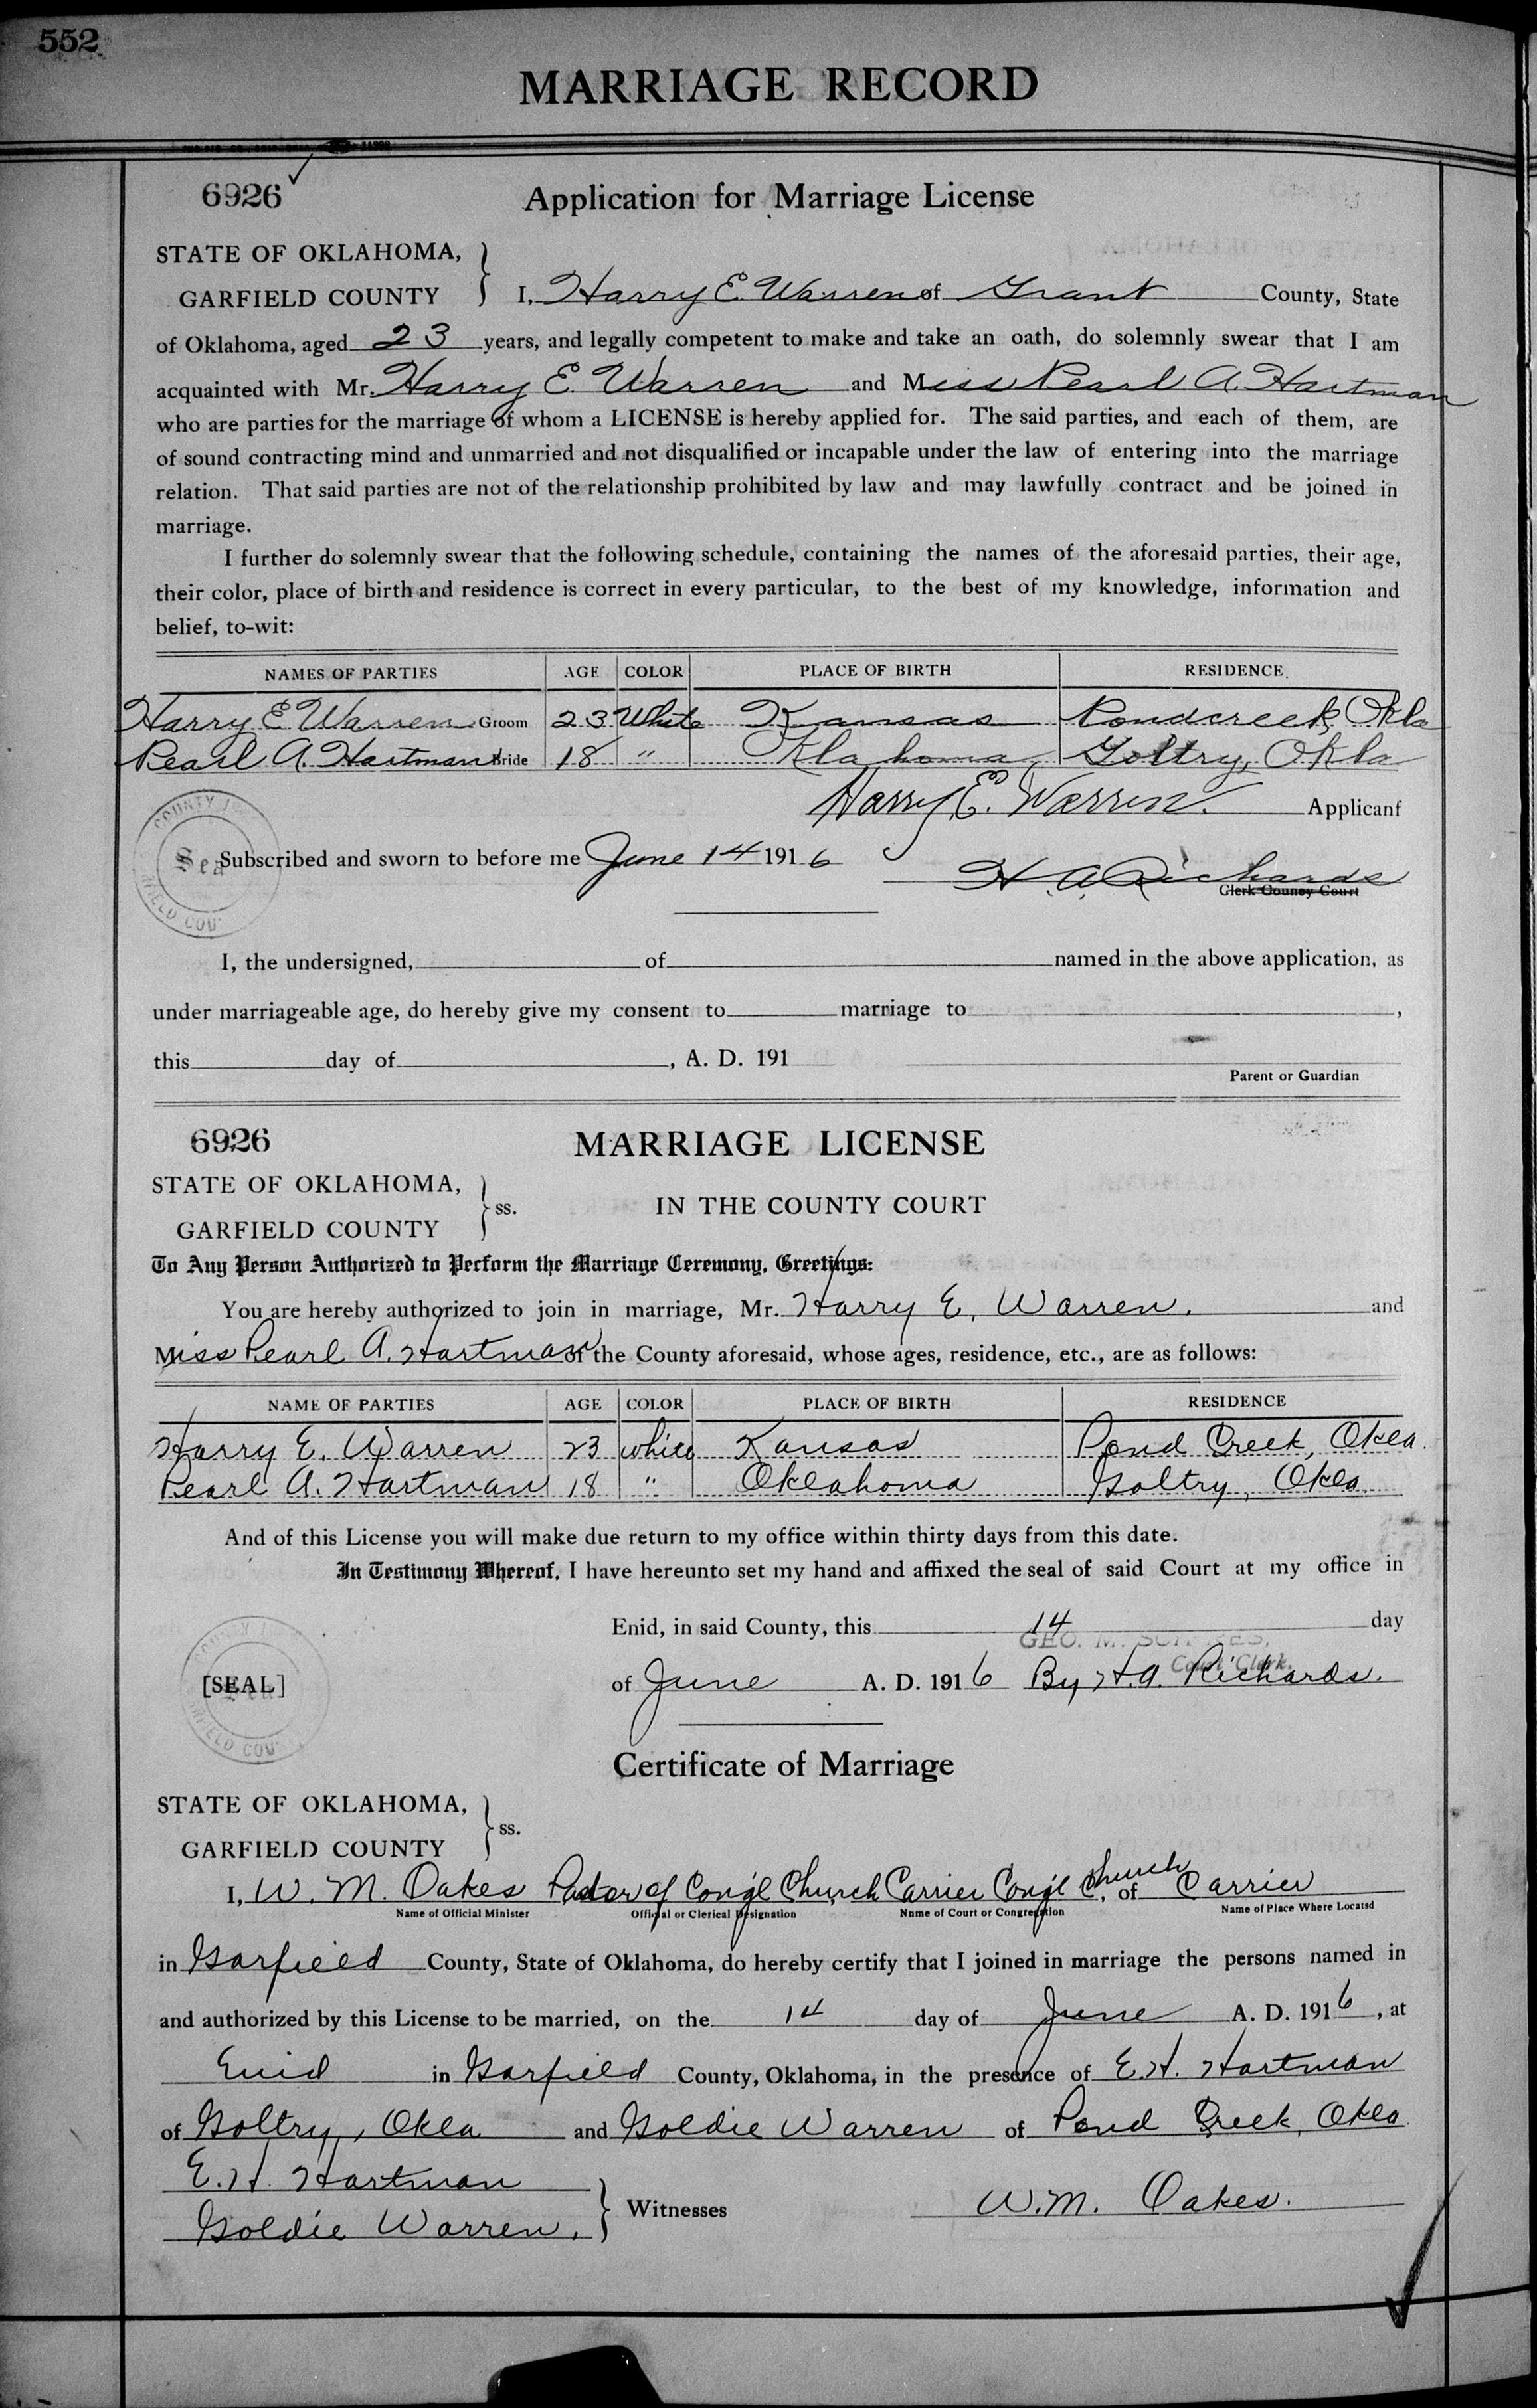 552
MARRIAGE RECORD
6926 ✓ Application for Marriage License
STATE OF OKLAHOMA,
GARFIELD COUNTY } I, Harry E. Warren of Grant County, State
of Oklahoma, aged 23 years, and legally competent to make and take an oath, do solemnly swear that I am
acquainted with Mr. Harry E. Warren and Miss Pearl A. Hartman
who are parties for the marriage of whom a LICENSE is hereby applied for. The said parties, and each of them, are
of sound contracting mind and unmarried and not disqualified or incapable under the law of entering into the marriage
relation. That said parties are not of the relationship prohibited by law and may lawfully contract and be joined in
marriage.
I further do solemnly swear that the following schedule, containing the names of the aforesaid parties, their age,
their color, place of birth and residence is correct in every particular, to the best of my knowledge, information and
belief, to-wit:
NAMES OF PARTIES AGE COLOR PLACE OF BIRTH RESIDENCE
Harry E Warren Groom 23 White Kansas Pondcreek, Okla
Pearl A. Hartman Bride 18 " Oklahoma Goltry, Okla
Harry E. Warren. Applicant
Subscribed and sworn to before me June 14 1916
H. A. Richards
Clerk County Court
I, the undersigned, of named in the above application, as
under marriageable age, do hereby give my consent to marriage to ,
this day of , A. D. 191
Parent or Guardian
6926 MARRIAGE LICENSE
STATE OF OKLAHOMA,
GARFIELD COUNTY } ss. IN THE COUNTY COURT
To Any Person Authorized to Perform the Marriage Ceremony, Greetings:
You are hereby authorized to join in marriage, Mr. Harry E. Warren. and
Miss Pearl A. Hartman of the County aforesaid, whose ages, residence, etc., are as follows:
NAME OF PARTIES AGE COLOR PLACE OF BIRTH RESIDENCE
Harry E. Warren 23 white Kansas Pond Creek, Okla.
Pearl A. Hartman 18 " Oklahoma Goltry, Okla.
And of this License you will make due return to my office within thirty days from this date.
In Testimony Whereof, I have hereunto set my hand and affixed the seal of said Court at my office in
Enid, in said County, this 14 day
GEO. M.
Court Clerk.
[SEAL] of June A. D. 1916 By H. A. Richards.
Certificate of Marriage
STATE OF OKLAHOMA,
GARFIELD COUNTY } ss.
I, W. M. Oakes Pastor of Cong'l Church Carrier Cong'l Church, of Carrier
Name of Official Minister Official or Clerical Designation Name of Court or Congregation Name of Place Where Locatsd
in Garfield County, State of Oklahoma, do hereby certify that I joined in marriage the persons named in
and authorized by this License to be married, on the 14 day of June A. D. 1916, at
Enid in Garfield County, Oklahoma, in the presence of E. H. Hartman
of Goltry, Okla and Goldie Warren of Pond Creek, Okla.
E. H. Hartman
Goldie Warren. } Witnesses W. M. Oakes.